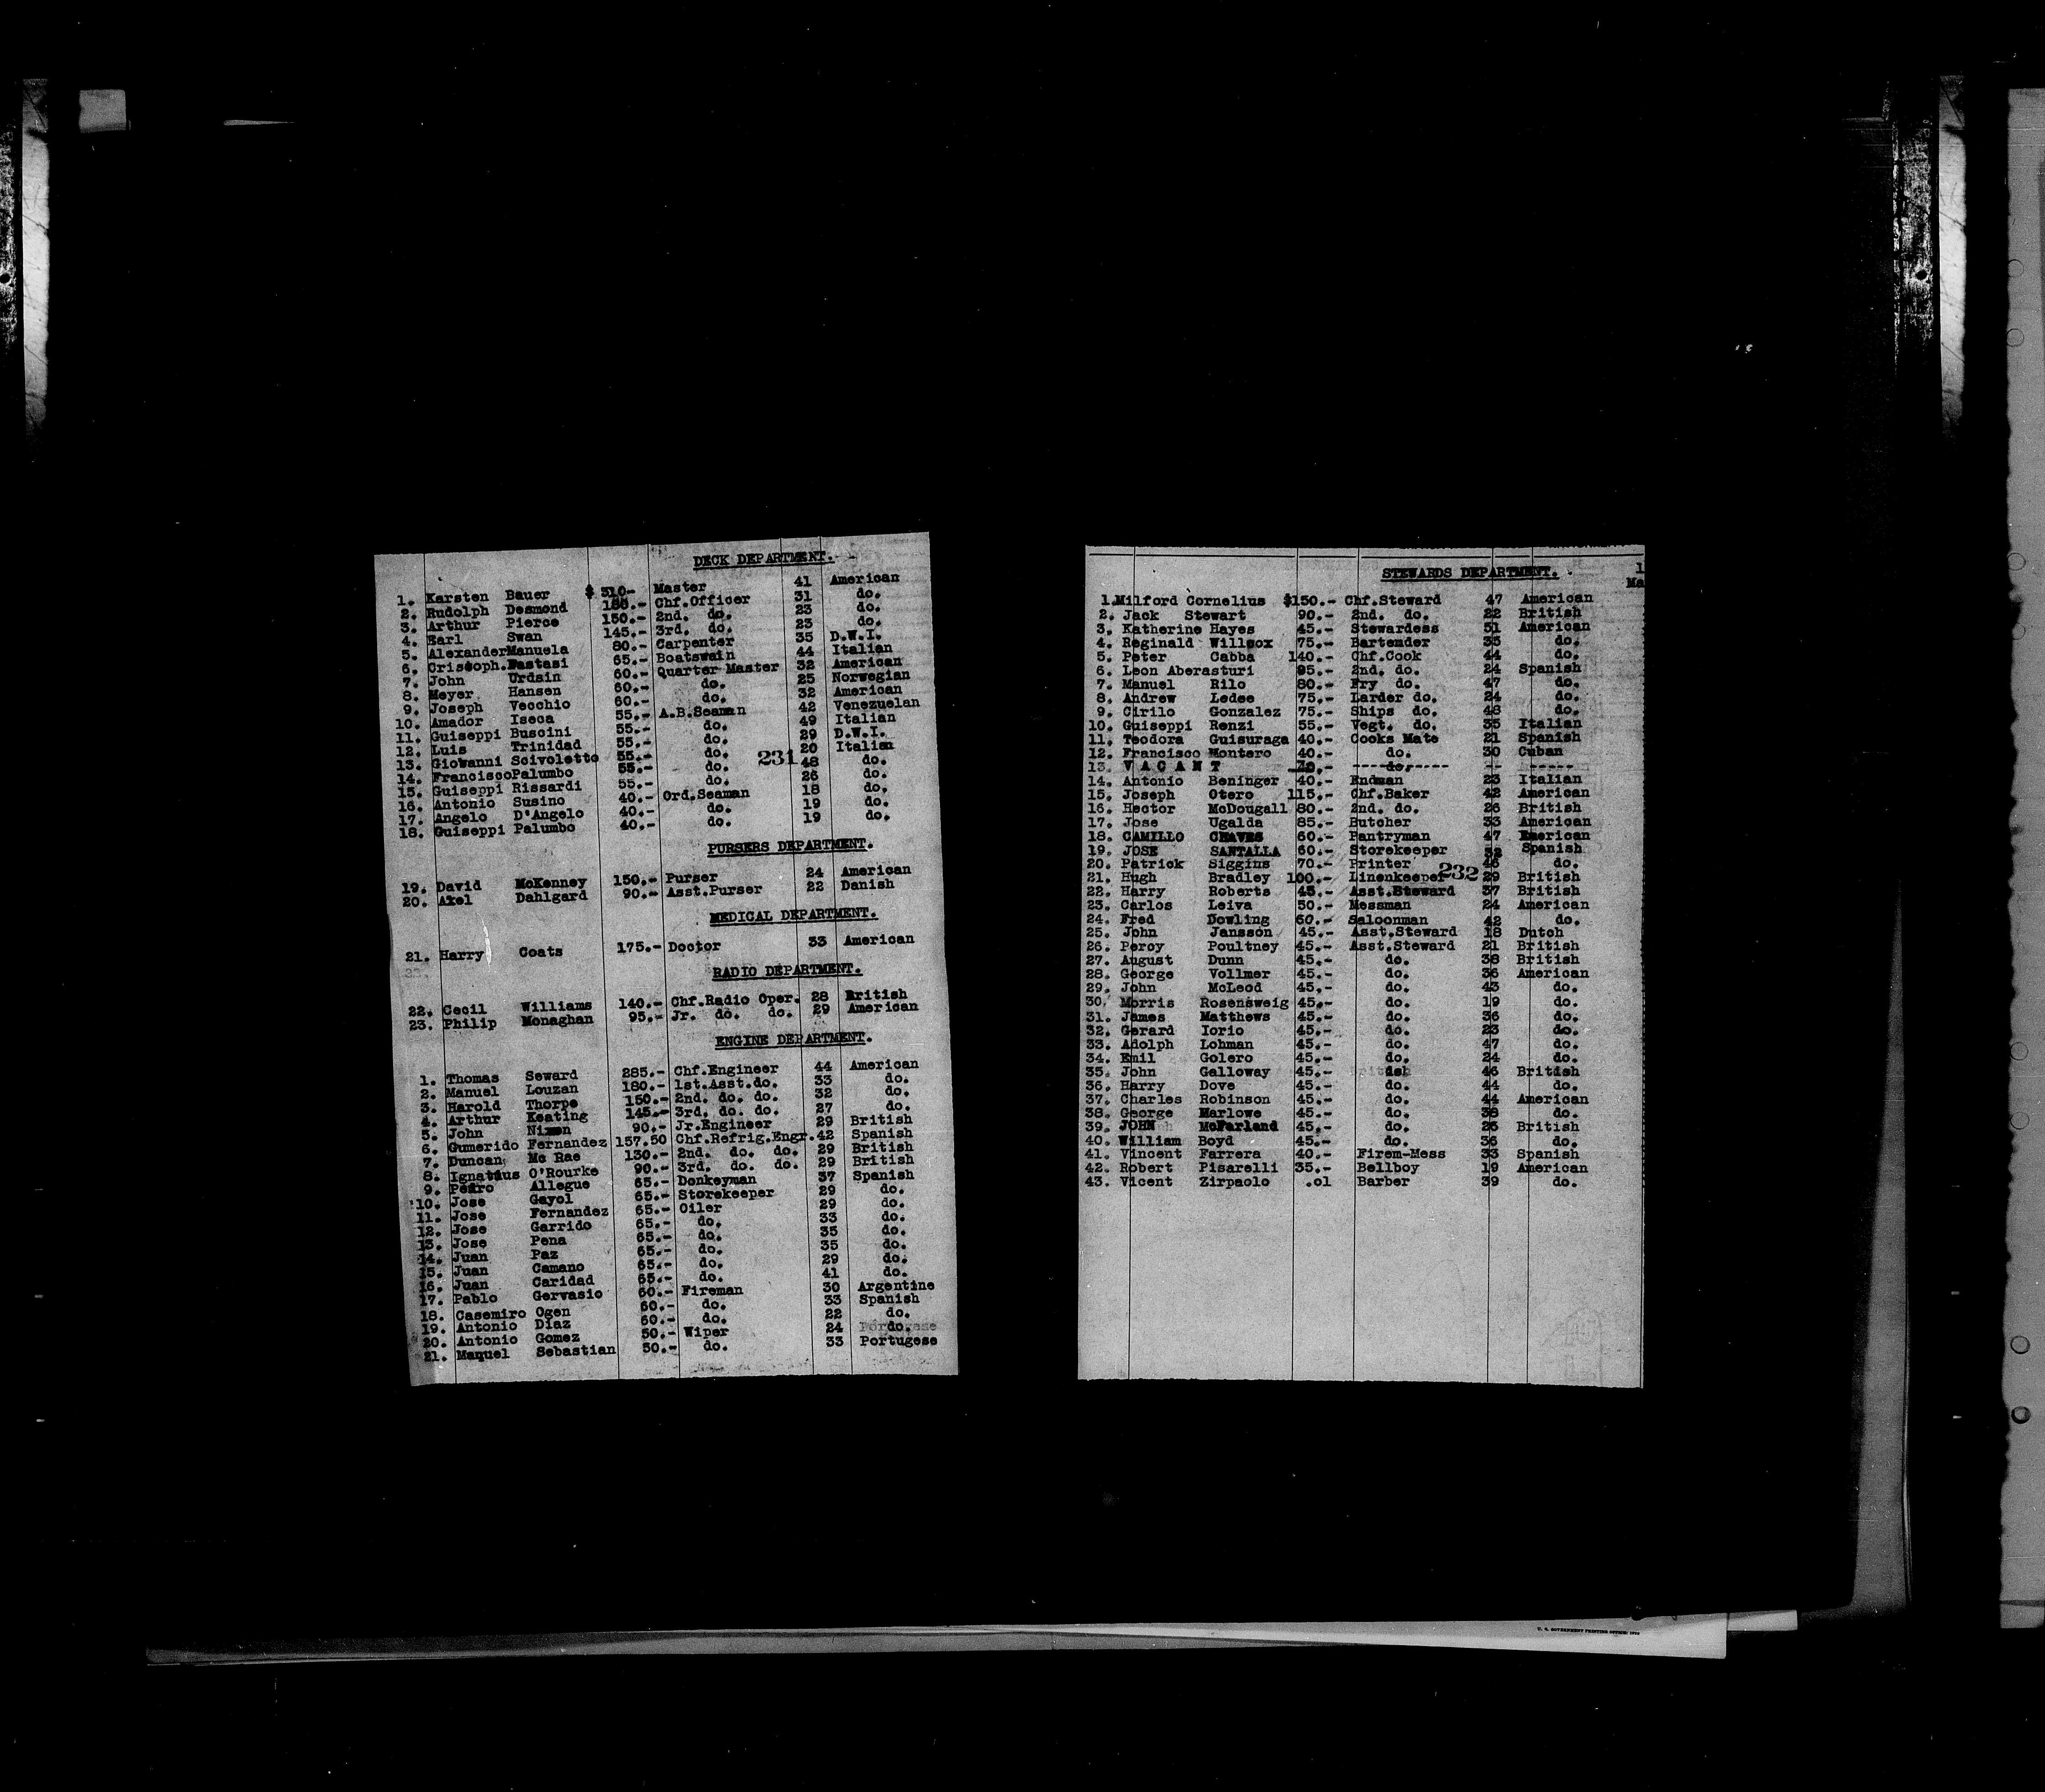 DECK DEPARTMENT.
1. Karsten Bauer $ 310- Master 41 American
2. Rudolph Desmond 180.- Chf.Officer 31 do.
3. Arthur Pierce 150.- 2nd. do. 23 do.
4. Earl Swan 145.- 3rd. do. 23 do.
5. Alexander Manuela 80.- Carpenter 35 D.W.I.
6. Cristoph. Nastasi 65.- Boatswain 44 Italian
7. John Urdsin 60.- Quarter Master 32 American
8. Meyer Hansen 60.- do. 25 Norwegian
9. Joseph Vecchio 60.- do. 32 American
10. Amador Iseca 55.- A.B.Seaman 42 Venezuelan
11. Guiseppi Buscini 55.- do. 49 Italian
12. Luis Trinidad 55.- do. 29 D.W.I.
13. Giovanni Scivoletto 55.- do. 20 Italian
231
14. Francisco Palumbo 55.- do. 48 do.
15. Guiseppi Rissardi 55.- do. 26 do.
16. Antonio Susino 40.- Ord.Seaman 18 do.
17. Angelo D'Angelo 40.- do. 19 do.
18. Guiseppi Palumbo 40.- do. 19 do.
PURSERS DEPARTMENT.
19. David McKenney 150.- Purser 24 American
20. Axel Dahlgard 90.- Asst.Purser 22 Danish
MEDICAL DEPARTMENT.
21. Harry Coats 175.- Doctor 33 American
RADIO DEPARTMENT.
22. Cecil Williams 140.- Chf.Radio Oper. 28 British
23. Philip Monaghan 95.- Jr. do. do. 29 American
ENGINE DEPARTMENT.
1. Thomas Seward 285.- Chf.Engineer 44 American
2. Manuel Louzan 180.- 1st.Asst.do. 33 do.
3. Harold Thorpe 150.- 2nd. do. do. 32 do.
4. Arthur Keating 145.- 3rd. do. do. 27 do.
5. John Nixon 90.- Jr.Engineer 29 British
6. Gumerido Fernandez 157.50 Chf.Refrig.Engr. 42 Spanish
7. Duncan Mc Rae 130.- 2nd. do. do. 29 British
8. Ignatius O'Rourke 90.- 3rd. do. do. 29 British
9. Pedro Allegue 65.- Donkeyman 37 Spanish
10. Jose Gayol 65.- Storekeeper 29 do.
11. Jose Fernandez 65.- Oiler 29 do.
12. Jose Garrido 65.- do. 33 do.
13. Jose Pena 65.- do. 35 do.
14. Juan Paz 65.- do. 35 do.
15. Juan Camano 65.- do. 29 do.
16. Juan Caridad 65.- do. 41 do.
17. Pablo Gervasio 60.- Fireman 30 Argentine
18. Casemiro Ogen 60.- do. 33 Spanish
19. Antonio Diaz 60.- do. 22 do.
20. Antonio Gomez 50.- Wiper 24 do.
21. Manuel Sebastian 50.- do. 33 Portugese
STEWARDS DEPARTMENT. 1
Ma
1. Milford Cornelius $150.- Chf.Steward 47 American
2. Jack Stewart 90.- 2nd. do. 22 British
3. Katherine Hayes 45.- Stewardess 51 American
4. Reginald Willcox 75.- Bartender 35 do.
5. Peter Cabba 140.- Chf.Cook 44 do.
6. Leon Aberasturi 95.- 2nd. do. 24 Spanish
7. Manuel Rilo 80.- Fry do. 47 do.
8. Andrew Ledee 75.- Larder do. 24 do.
9. Cirilo Gonzalez 75.- Ships do. 48 do.
10. Guiseppi Renzi 55.- Vegt. do. 35 Italian
11. Teodora Guisuraga 40.- Cooks Mate 21 Spanish
12. Francisco Montero 40.- do. 30 Cuban
13. V A C A N T ----do.----- -- -----
14. Antonio Beninger 40.- Endman 23 Italian
15. Joseph Otero 115.- Chf.Baker 42 American
16. Hector McDougall 80.- 2nd. do. 26 British
17. Jose Ugalda 85.- Butcher 33 American
18. CAMILLO CHAVES 60.- Pantryman 47 American
19. JOSE SANTALLA 60.- Storekeeper 32 Spanish
20. Patrick Siggins 70.- Printer 46 do.
232
21. Hugh Bradley 100.- Linenkeeper 29 British
22. Harry Roberts 45.- Asst.Steward 37 British
23. Carlos Leiva 50.- Messman 24 American
24. Fred Dowling 60.- Saloonman 42 do.
25. John Jansson 45.- Asst.Steward 18 Dutch
26. Percy Poultney 45.- Asst.Steward 21 British
27. August Dunn 45.- do. 38 British
28. George Vollmer 45.- do. 36 American
29. John McLeod 45.- do. 43 do.
30. Morris Rosensweig 45.- do. 19 do.
31. James Matthews 45.- do. 36 do.
32. Gerard Iorio 45.- do. 23 do.
33. Adolph Lohman 45.- do. 47 do.
34. Emil Golero 45.- do. 24 do.
35. John Galloway 45.- do. 46 British
36. Harry Dove 45.- do. 44 do.
37. Charles Robinson 45.- do. 44 American
38. George Marlowe 45.- do. 38 do.
39. JOHN McFarland 45.- do. 26 British
40. William Boyd 45.- do. 36 do.
41. Vincent Farrera 40.- Firem-Mess 33 Spanish
42. Robert Pisarelli 35.- Bellboy 19 American
43. Vicent Zirpaolo .01 Barber 39 do.
U. S. GOVERNMENT PRINTING OFFICE: